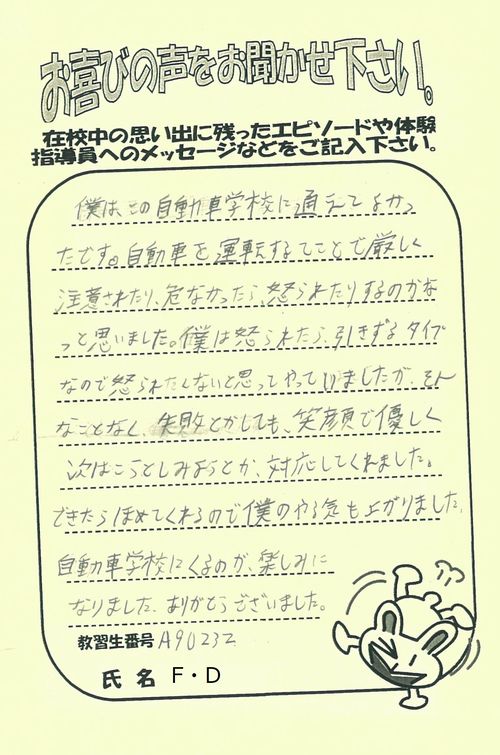 お喜びの声をお聞かせ下さい。
在校中の思い出に残ったエピソードや体験
指導員へのメッセージなどをご記入下さい。
僕は、この自動車学校に通えてよかっ
たです。自動車を運転するってことで厳しく
注意されたり、危なかったら、怒られたりするのかな
っと思いました。僕は怒られたら、引きずるタイプ
なので怒られたくないと思ってやっていましたが、そん
なことなく、失敗とかしても、笑顔で優しく
次はこうしてみようとか、対応してくれました。
できたらほめてくれるので僕のやる気も上がりました。
自動車学校にくるのが、楽しみに
なりました。ありがとうございました。
教習生番号 A90232
氏名 F・D